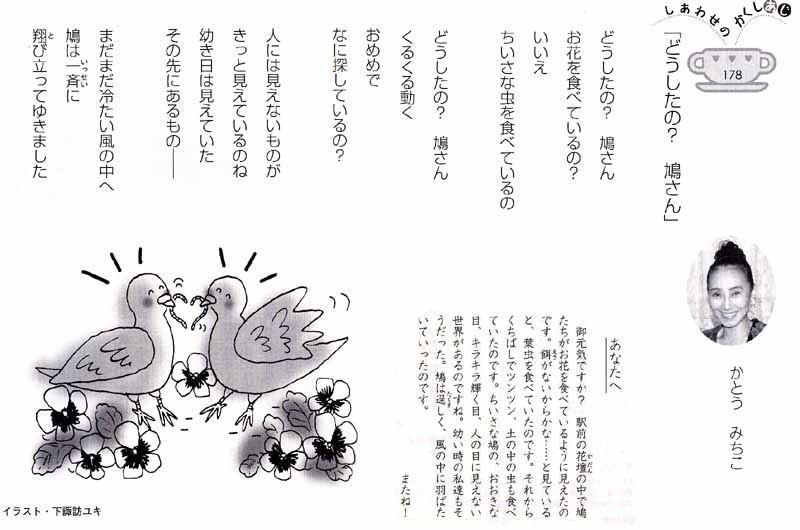 しあわせの かくしあじ
178
「どうしたの？　鳩さん」
かとう　みちこ
どうしたの？　鳩さん
お花を食べているの？
いいえ
ちいさな虫を食べているの
どうしたの？　鳩さん
くるくる動く
おめめで
なに探しているの？
人には見えないものが
きっと見えているのね
幼き日は見えていた
その先にあるもの――
まだまだ冷たい風の中へ
鳩は一斉に
翔び立ってゆきました
あなたへ
御元気ですか？　駅前の花壇の中で鳩
たちがお花を食べているように見えたの
です。餌がないからかな……と見ている
と、葉虫を食べていたのです。それから
くちばしでツンツン、土の中の虫も食べ
ていたのです。ちいさな鳩の、おおきな
目、キラキラ輝く目、人の目に見えない
世界があるのですね。幼い時の私達もそ
うだった。鳩は逞しく、風の中に羽ばた
いていったのです。
またねー
イラスト・下諏訪ユキ